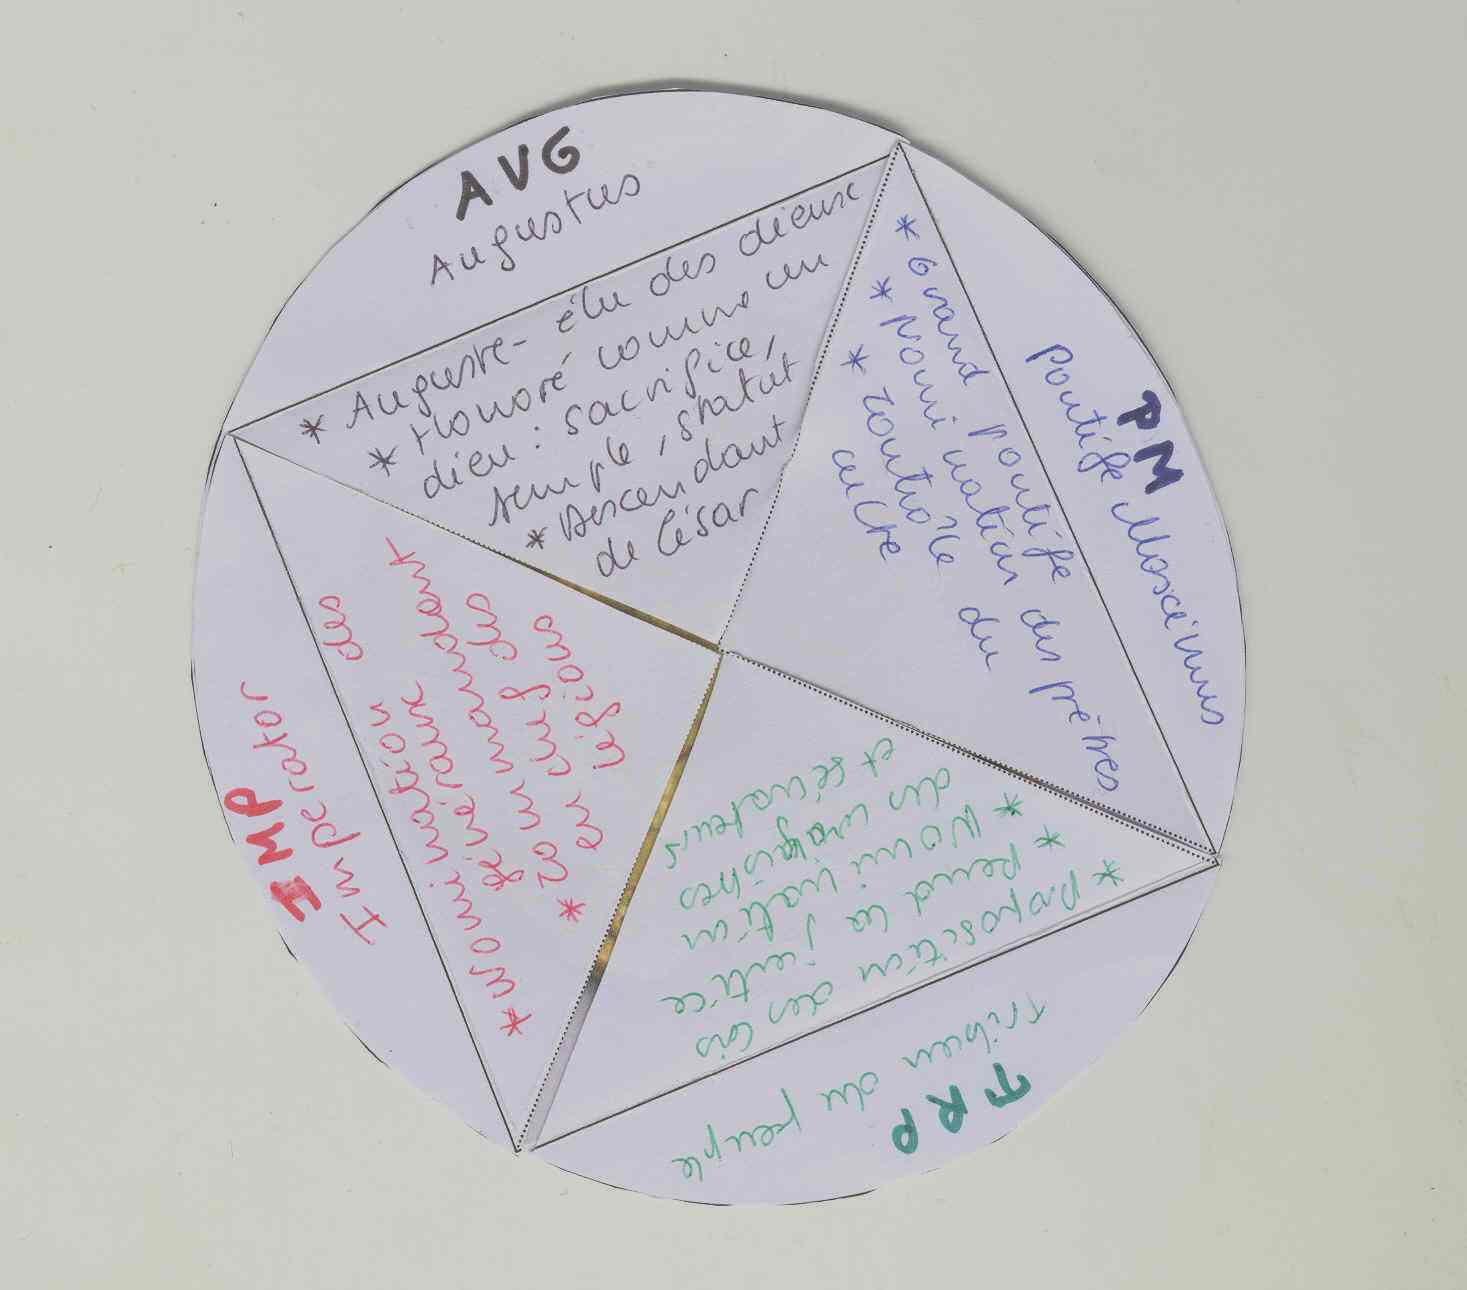 AVG
Augustus
* Auguste - élu des dieux
* Honoré comme un
dieu : sacrifice,
temple, statut
* Descendant
de César
PM
Pontife Maxcimus
* Grand pontife
* Nomination des prêtres
* Contrôle du
culte
TRP
Tribun du peuple
* Proposition des lois
* Rend la justice
* Nomination
des magistres
et sénateurs
IMP
Imperator
* Nomination des
généraux
* Commandent
en chef des
légions